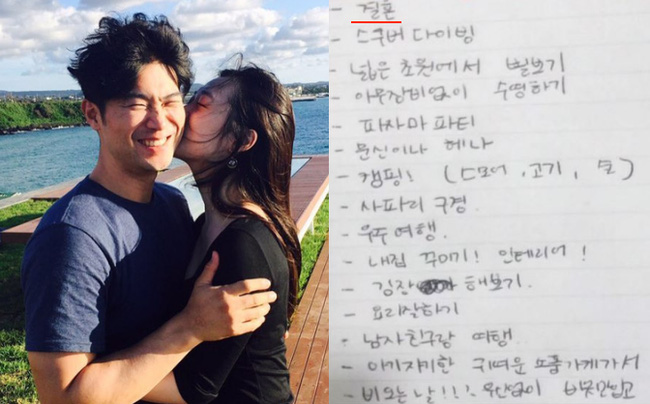 - 결혼
- 스쿠버 다이빙
- 넓은 초원에서 별보기
- 아무장비없이 수영하기
- 파자마 파티
- 문신이나 헤나
- 캠핑! (스모어, 고기, 술)
- 사파리 구경
- 우주 여행.
- 내집 꾸미기! 인테리어!
- 김장 해보기.
- 요리잘하기
- 남자친구랑 여행
- 아기자기한 귀여운 소품가게가서
- 비오는날!!! 우산없이 비맞고